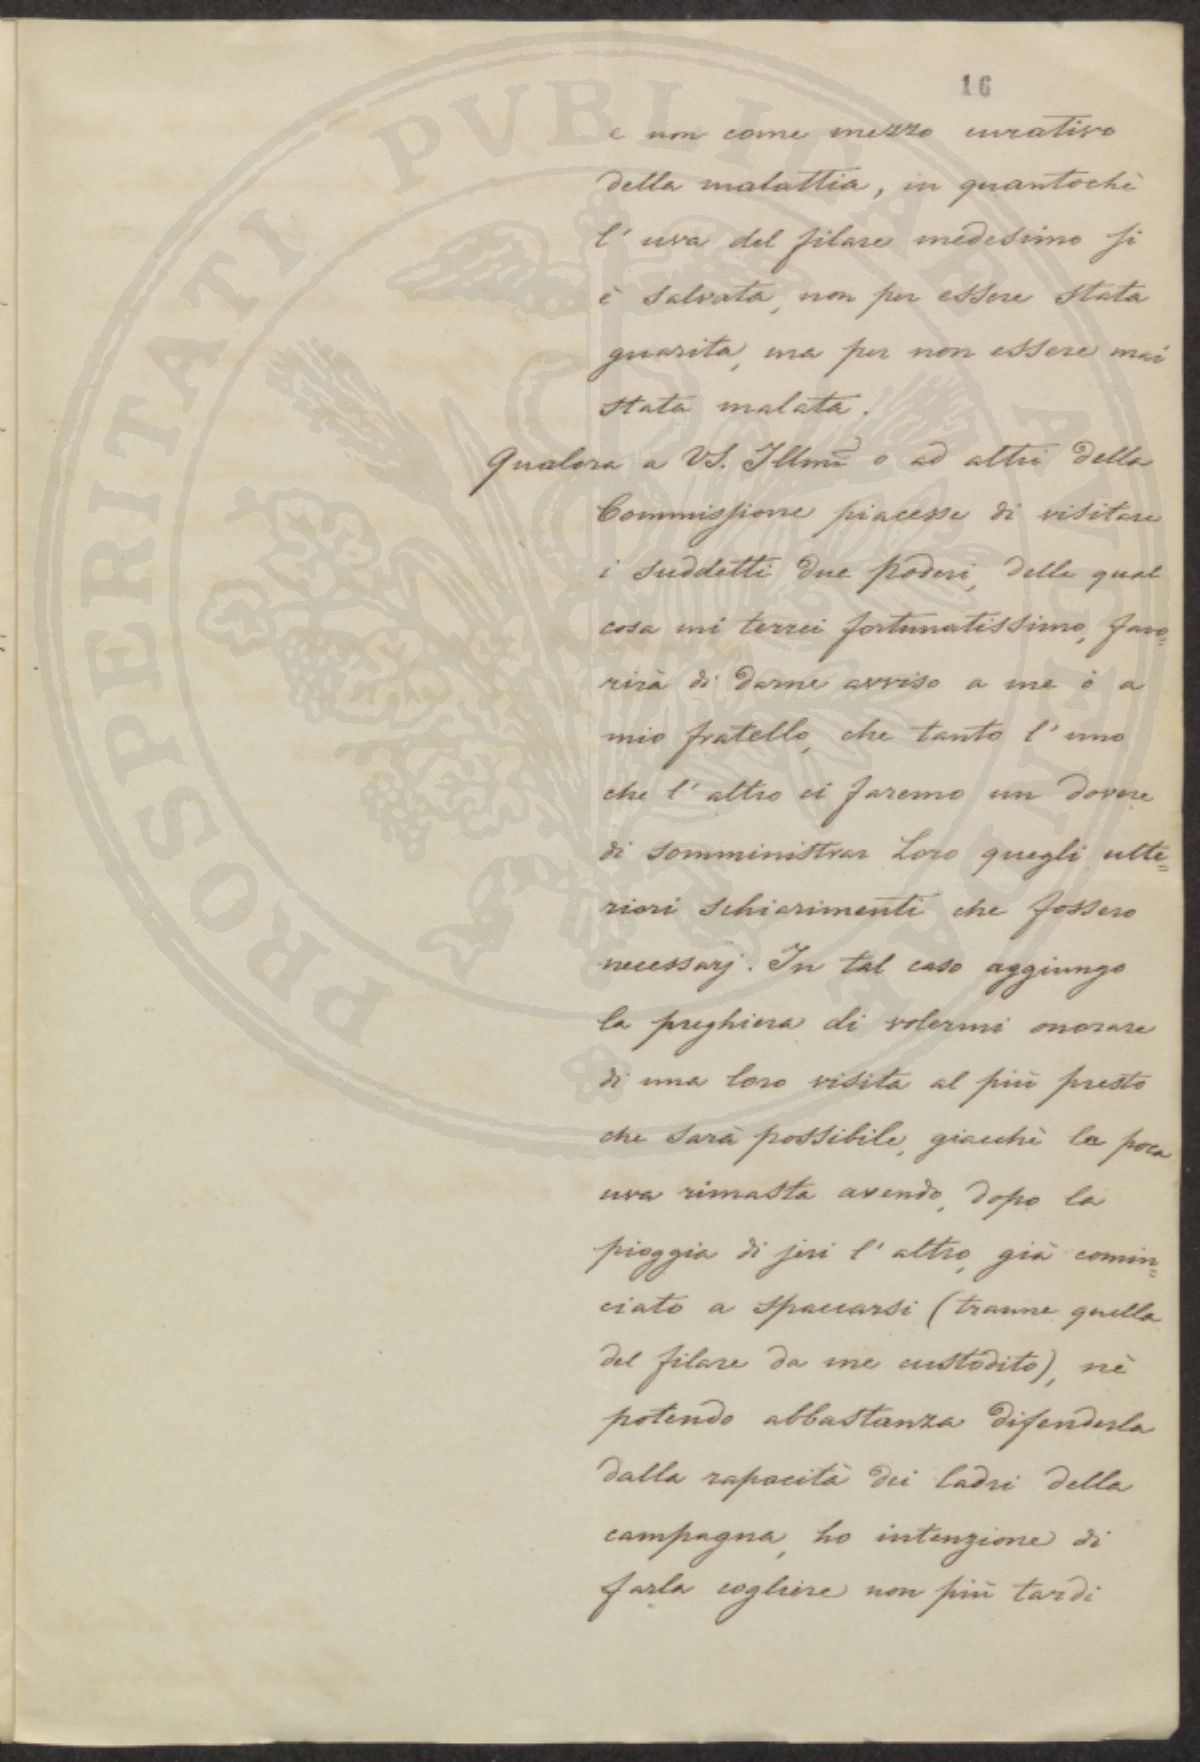 16
e non come mezzo curativo
della malattia, in quantochè
l' uva del filare medesimo si
è salvata, non per essere stata
guarita, ma per non essere mai
stata malata.
Qualora a VS. Illma o ad altri della
Commissione piacesse di visitare
i suddetti due poderi, della qual
cosa mi terrei fortunatissimo, favo=
rirà di darne avviso a me ò a
mio fratello, che tanto l' uno
che l' altro ci faremo un dovere
di somministrar Loro quegli ulte=
riori schiarimenti che fossero
necessarj. In tal caso aggiungo
la preghiera di volermi onorare
di una loro visita al più presto
che sarà possibile, giacchè la poca
uva rimasta avendo, dopo la
pioggia di jeri l' altro, già comin=
ciato a spaccarsi (tranne quella
del filare da me custodito), nè
potendo abbastanza difenderla
dalla rapacità dei ladri della
campagna, ho intenzione di
farla cogliere non più tardi
PROSPERITATI PVBLICAE AVGENDAE